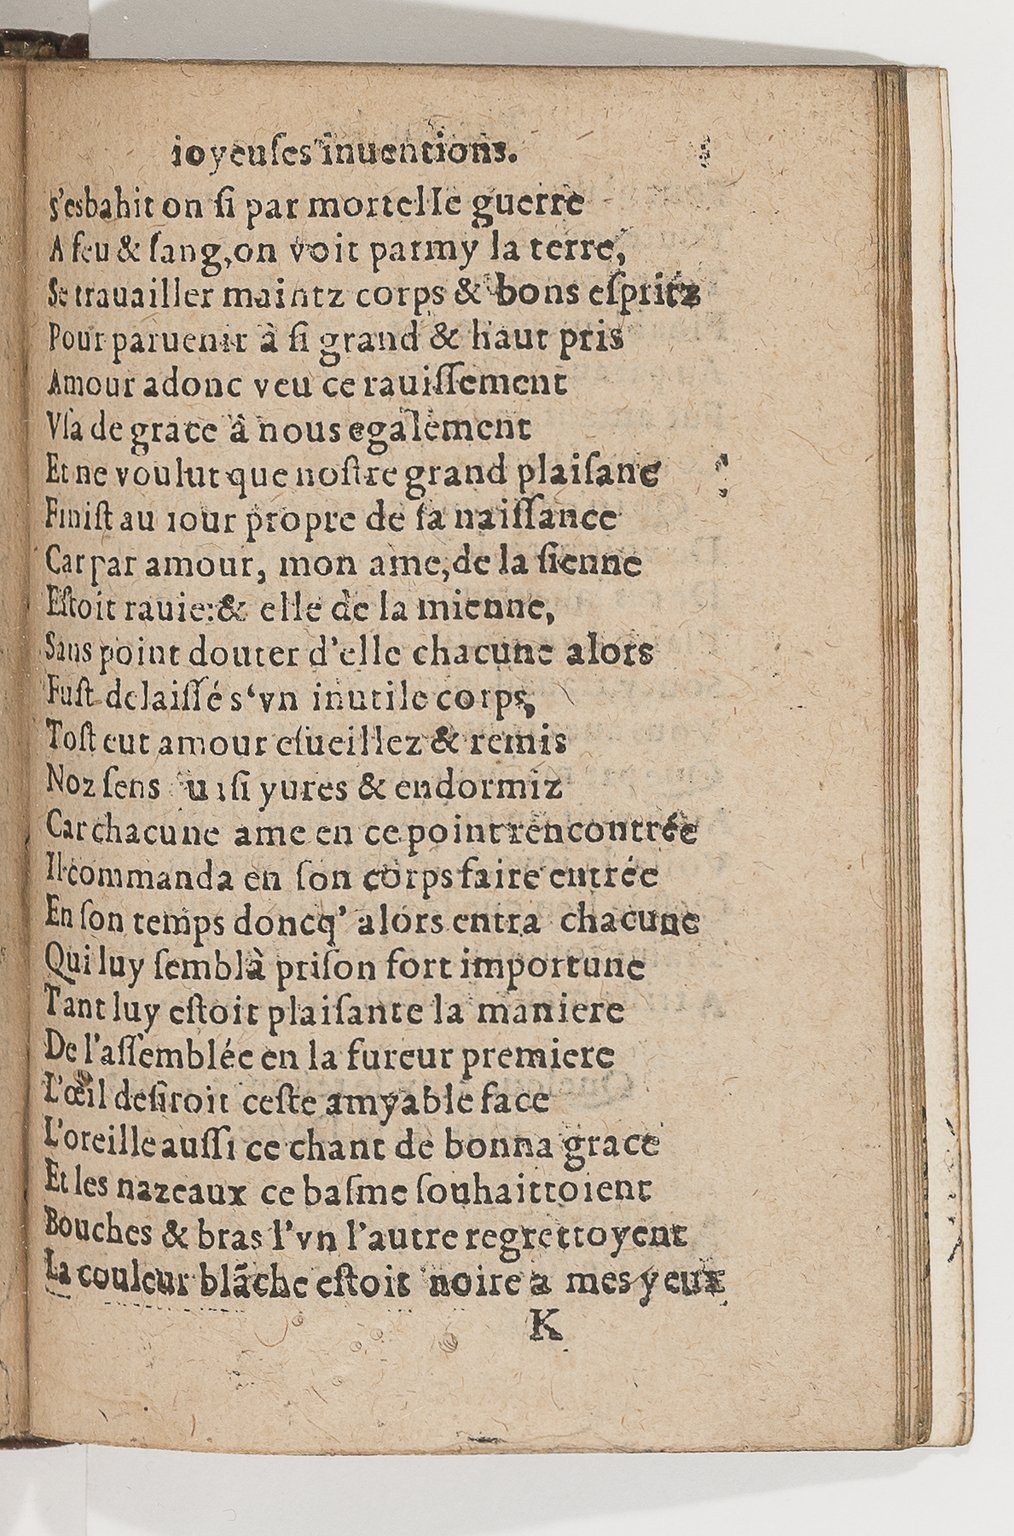 ioyeuſes inuentions.
s'esbahit on ſi par mortelle guerre
A feu & ſang, on voit parmy la terre,
Se trauailler maintz corps & bons eſpritz
Pour paruenir à ſi grand & haut pris
Amour adonc veu ce rauiſſement
Vſa de grace à nous egalement
Et ne voulut que noſtre grand plaiſanc
Finiſt au iour propre de ſa naiſſance
Car par amour, mon ame, de la ſienne
Eſtoit rauie: & elle de la mienne,
Sans point douter d'elle chacune alors
Fuſt delaiſſé s‘vn inutile corps,
Toſt eut amour eſueillez & remis
Noz ſens yures & endormiz
Car chacune ame en ce point rencontrée
Il commanda en ſon corps faire entrée
En ſon temps doncq' alors entra chacune
Qui luy ſemblà priſon fort importune
Tant luy eſtoit plaiſante la maniere
De l'aſſemblée en la fureur premiere
L'œil deſiroit ceſte amyable face
L'oreille auſſi ce chant de bonna grace
Et les nazeaux ce baſme ſouhaittoient
Bouches & bras l'vn l'autre regrettoyent
La couleur blãche eſtoit noire a mes yeux
K